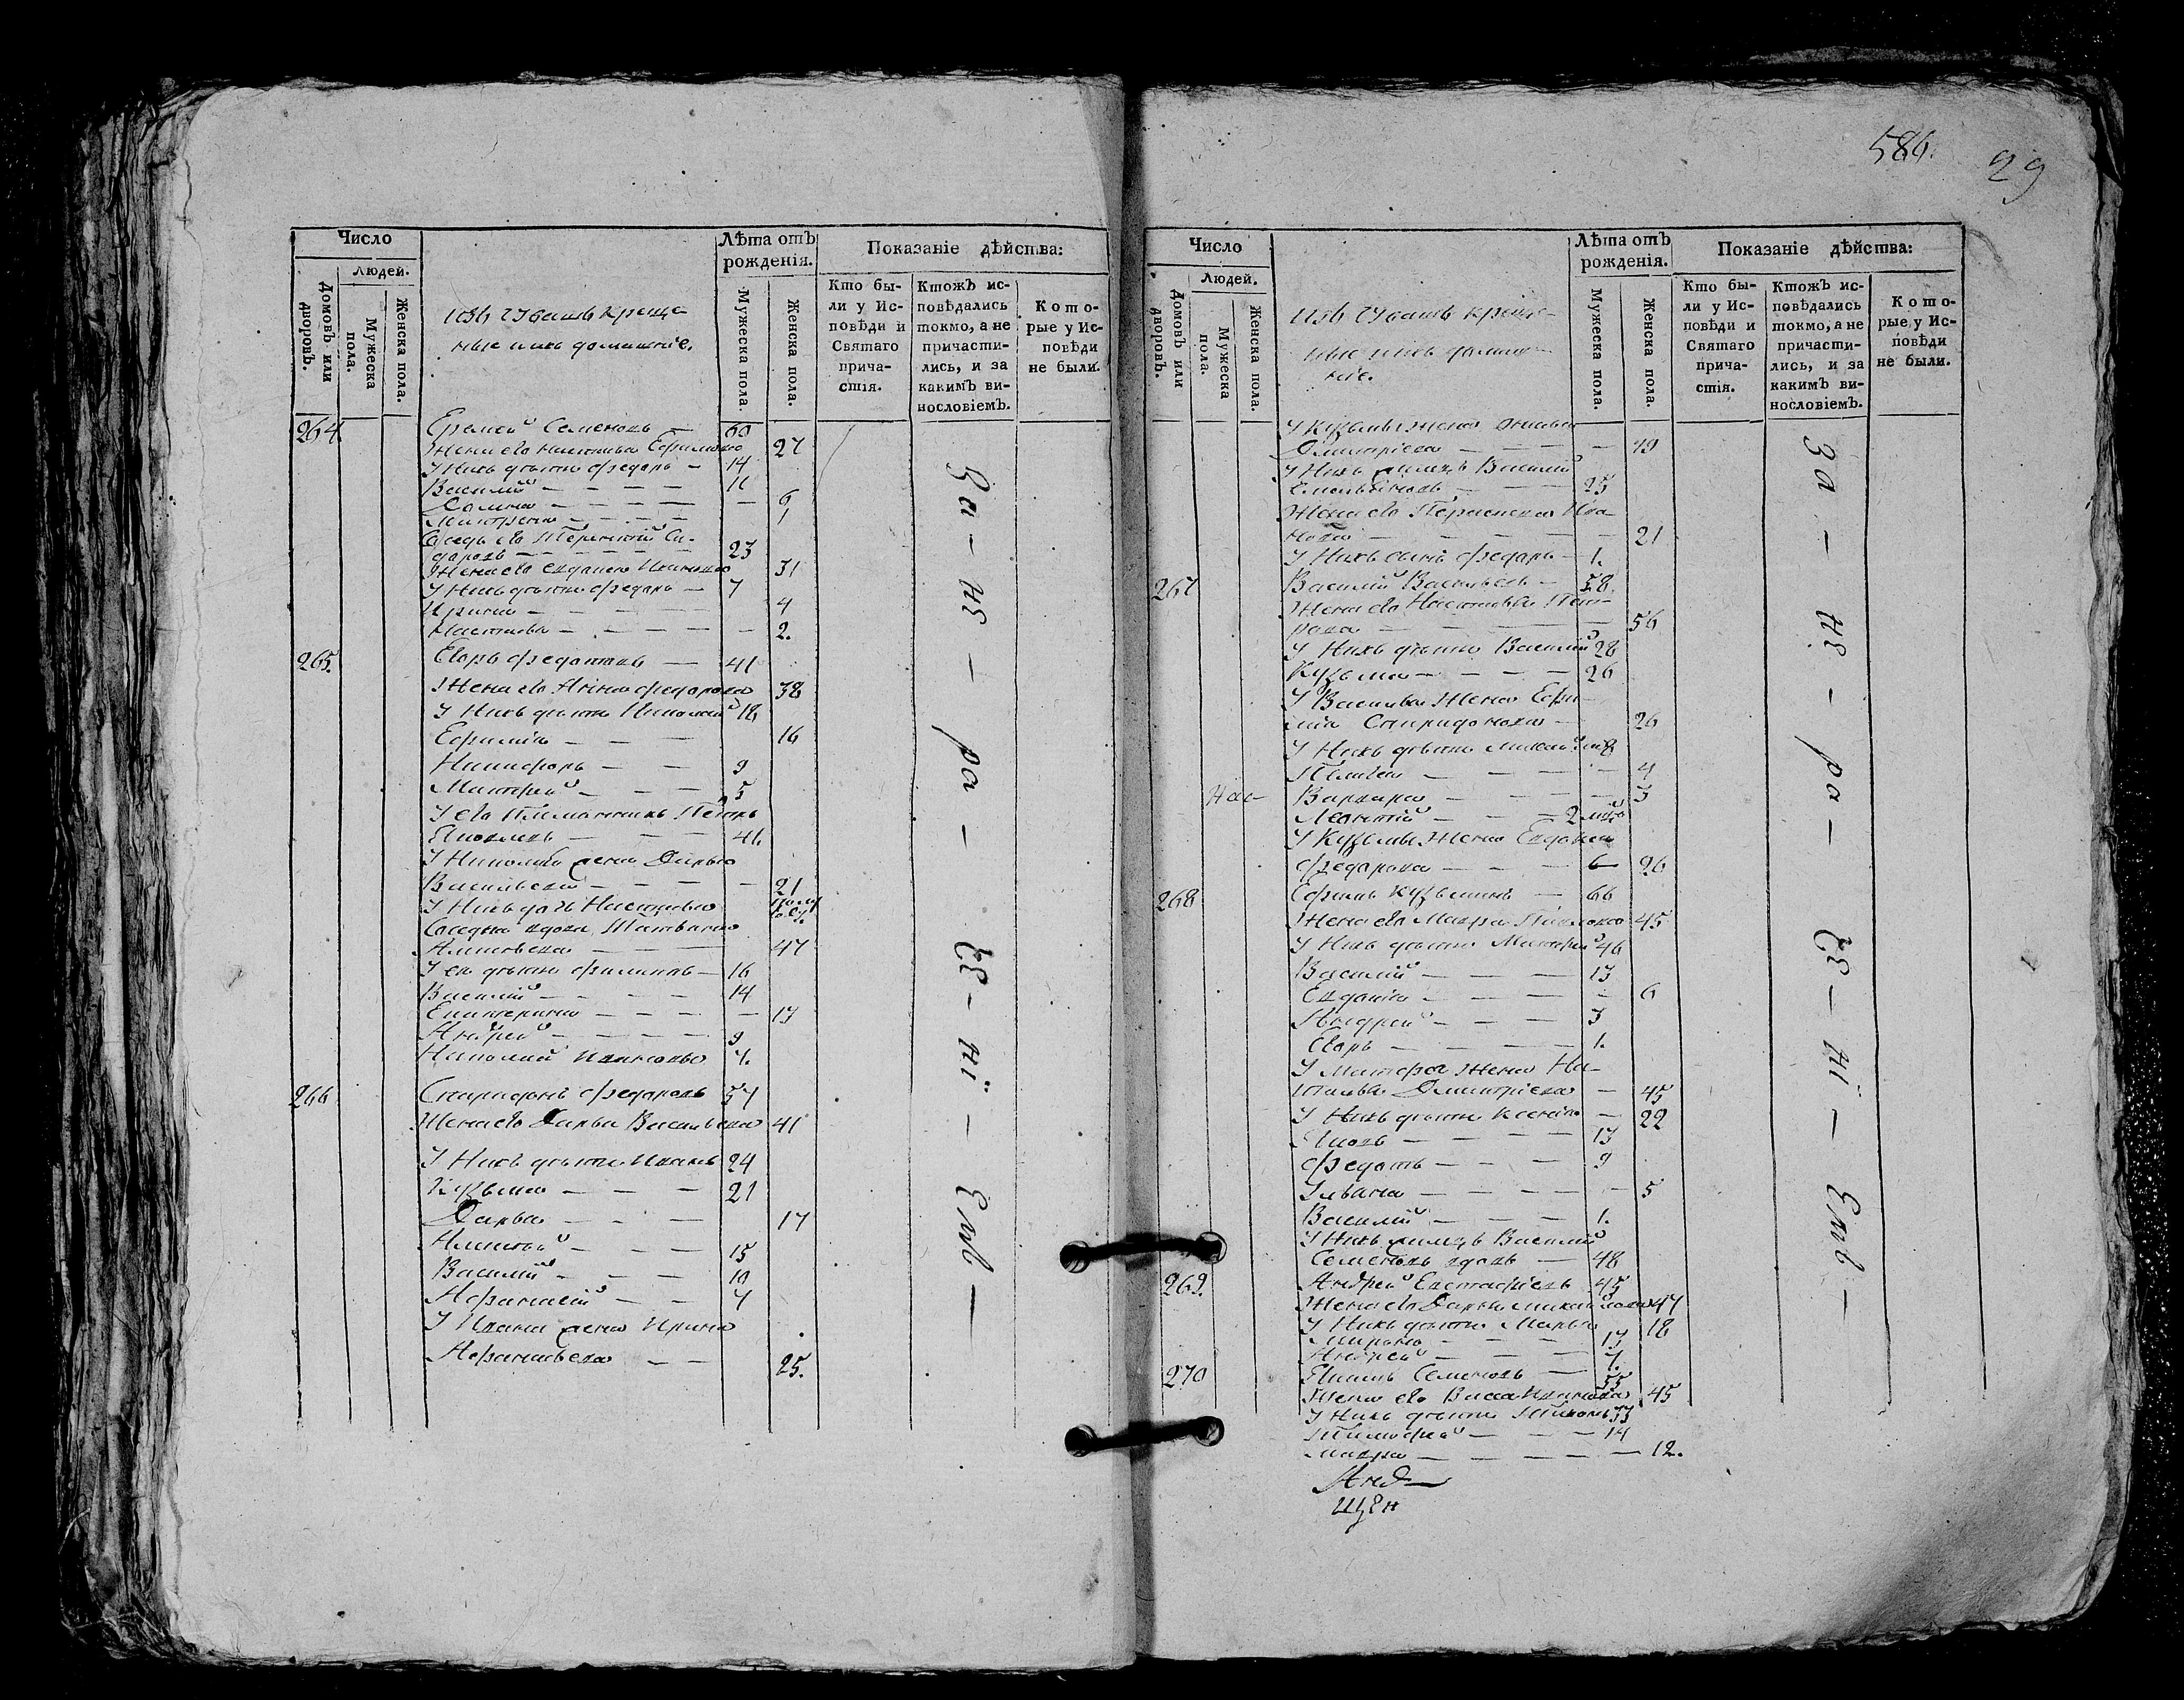 Число
Людей.
Домовъ или дворовъ.
Мужеска пола.
Женска пола.
изъ Чувашъ креще-
ные и ихъ домашніе.
Лѣта отъ рожденія.
Мужеска пола.
Женска пола.
Показаніе дѣйства:
Кто бы-
ли у Ис-
повѣди и
Святаго
прича-
стія.
Ктожъ ис-
повѣдались
токмо, а не
причасти-
лись, и за
какимъ ви-
нословіемъ.
Кото-
рые у Ис-
повѣди
не были.
264 Еремей Семеновъ — 60
Жена ево Настасья Ефимова 27
У нихъ дѣти Федоръ — 14
Василей — 11
— 6
— 1
Соседъ ево Терентій Си-
даровъ — 23
Жена ево Евдокея Иванова 31
У нихъ дѣти Федоръ — 7
Ирина — 4
Настасья — 2.
265. Егоръ Федотовъ — 41
Жена ево Анна Федорова 38
У нихъ дѣти Николай 18
Ефимія — 16
Никифоръ — 9
Матфей — 5
У ево племянникъ Петръ
Яковлевъ — 41.
У Николая жена Дарья
Васильева — 21
У нихъ дочь Настасья
Соседка вдова Татьяна
Алексеева — 47
У ея дѣти Филиппъ — 16
Василей — 14
Екатерина — 13
Андрей — 9
Николай Ивановъ 7.
266 Спиридонъ Федоровъ 57
Жена ево Дарья Васильева 41
У нихъ дѣти Иванъ 24
Кузьма — 21
Дарья — 17
Алексей — 15
Василей — 10
Афанасей — 7
У Ивана жена Ирина
Афанасьева — 25.
За — не — ра — че — ні — емъ —
586.
29
Число
Людей.
Домовъ или дворовъ.
Мужеска пола.
Женска пола.
Изъ Чувашъ креще-
ные и ихъ домаш-
ніе.
Лѣта отъ рожденія.
Мужеска пола.
Женска пола.
Показаніе дѣйства:
Кто бы-
ли у Ис-
повѣди и
Святаго
прича-
стія.
Ктожъ ис-
повѣдались
токмо, а не
причасти-
лись, и за
какимъ ви-
нословіемъ.
Кото-
рые у Ис-
повѣди
не были.
У Кузьмы жена
Дмитріева — 19
У нихъ Василей
Емельяновъ — 25
Жена ево Ива-
нова — 21
У нихъ сынъ Федоръ — 1.
267 Василей Васильевъ — 58
Жена ево Настасья Пет-
рова — 56
У нихъ дѣти Василей 28
Кузьма — 26
У Василья жена Ефи-
мія Спиридонова — 26
У нихъ дѣти 8
Пелагея — 4
Нас- Варвара — 3
Леонтій —
У Кузьмы жена Евдокея
Федорова — 26
268 Ефимъ Кузьминъ — 66
Жена ево Мавра Павлова 45
У нихъ дѣти Матфей 46
Василей — 13
Евдокія — 6
Андрей — 3
Егоръ — 1.
У Матфея жена На-
стасья Дмитріева — 45
У нихъ дѣти Ксенія — 22
Яковъ — 13
Федотъ — 9
Ульяна — 5
Василей — 1.
У нихъ Василей
Семеновъ вдовъ — 48
269. Андрей Евстафіевъ 45
Жена ево Дарья Михайлова 47
У нихъ дѣти Марья 18
— 13
Андрей — 7.
270 Семеновъ — 55
Жена ево Васса Иванова 45
У нихъ дѣти 33
Тимофей — 14
Мавра — 12.
Анд —
щен
За — не — ра — че — ні — емъ —